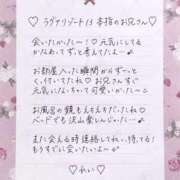 ♡ ラヴァリゾート 13 本指のお兄さん ♡
会いたかったー！♡ 元気にしてる
かなあってずっと考えてたよ…♪
お部屋入った瞬間からずーっと
くっ付いてたね♡ お兄さんすぐ
元気になっちゃって可愛いかったー♡
お風呂の鏡もえちえちだったね♡
ベッドでも沢山楽しんじゃった…♪
また会える時連絡してねっ、待ってる！
もうすでに会いたいよ〜♪
♡ れい ♡